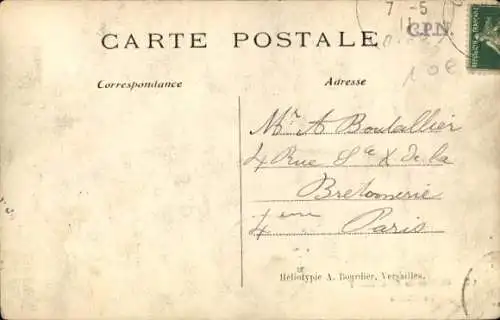 7 - 5
11
C.P.N.
CARTE POSTALE
10€
Correspondance
Adresse
Mr A Boutallier
4 Rue Ste X de la
Bretonnerie
4eme Paris
Héliotypie A. Bourdier, Versailles.